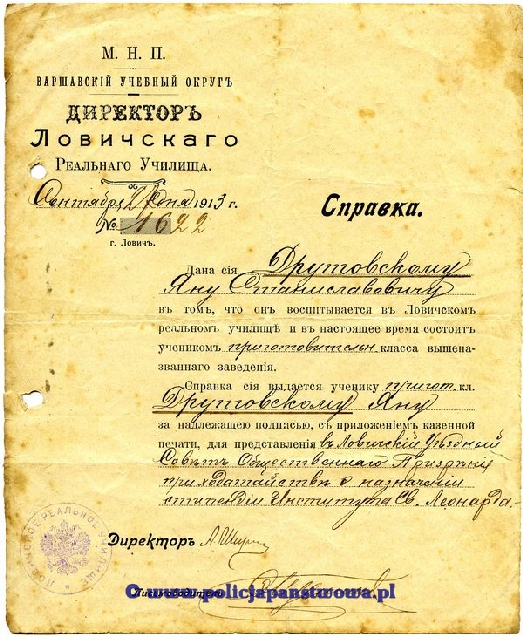 М. Н. П.
ВАРШАВСКІЙ УЧЕБНЫЙ ОКРУГЪ
ДИРЕКТОРЪ
Ловичскаго
Реальнаго Училища.
Сентября 2 дня 1913 г.
№ 1622
г. Ловичъ.
Справка.
Дана сія Друтовскому
Яну Станиславовичу
въ томъ, что онъ воспитывается въ Ловичскомъ
реальномъ училищѣ и въ настоящее время состоитъ
ученикомъ приготовительн. класса вышена-
званнаго заведенія.
Справка сія выдается ученику пригот. кл.
Друтовскому Яну
за надлежащею подписью, съ приложеніемъ казенной
печати, для представленія въ Ловичскій Уѣздный
Совѣтъ Общественнаго Призрѣнія
при ходатайствѣ о назначеніи
стипендіи Института Св. Леонарда.
Директоръ
Письмоводитель
© www.policjapanstwowa.pl